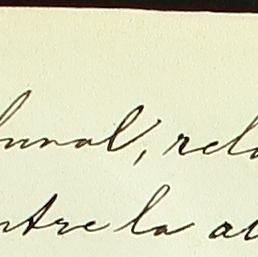 bunal, rela
ntre la a